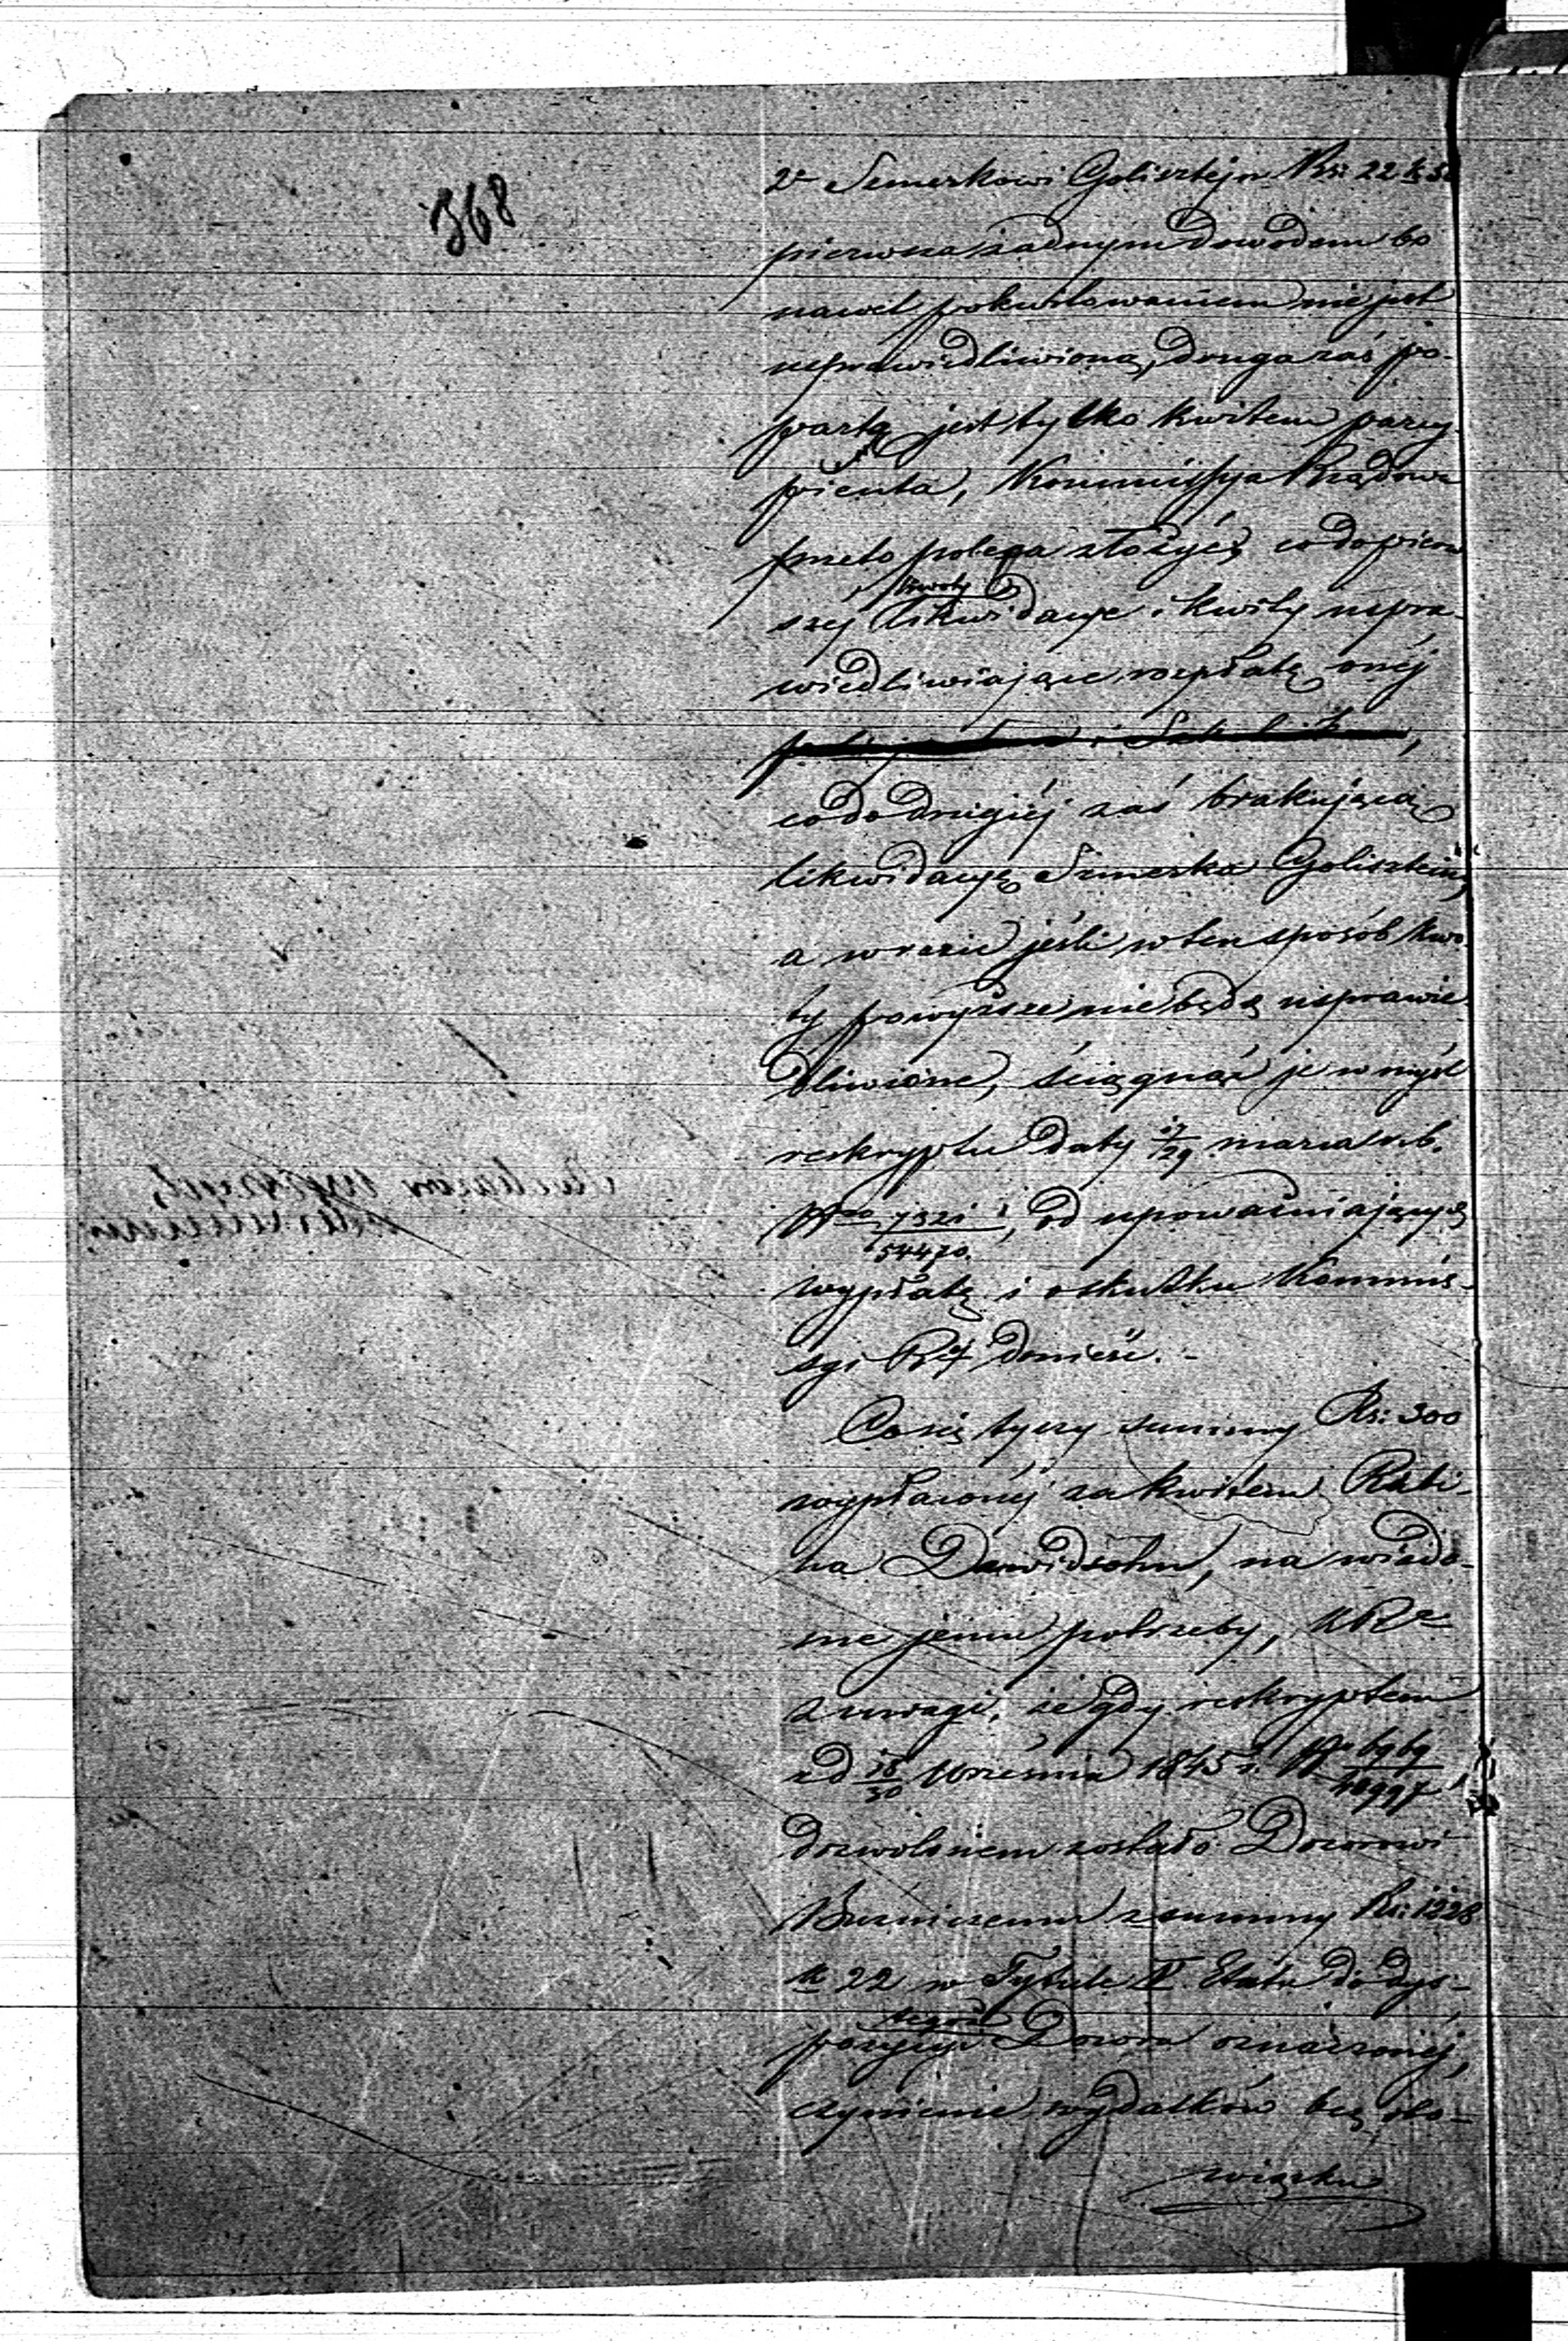 368
2e Szmerkowi Golisztejn Rs: 22 k 50
pierwsza żadnym dowodem bo
nawet pokwitowaniem nie jest
usprawiedliwioną, druga zaś po-
partą jest tylko kwitem percy-
pienta, Kommissya Rządowa
przeto poleca złożyć, co do pierw
szej kwoty likwidacye i kwity uspra-
wiedliwiające wypłatę onéj
co do drugiéj zaś brakującą
likwidacyę Szmerka Golisztein,
a w razie jeśli w ten sposób kwo-
ty powyższe nie będą usprawie
dliwione, ściągnąć je w myśl
reskryptu daty 17/29 marca r. b.
N° 7321/54470, od upoważniających
wypłatę i o skutku Kommis-
syi Rz donieść. -
Co się tyczy summy Rs: 300
wypłaconéj za kwitem Rabi-
na Dawidsohn, na wiado-
me jemu potrzeby, KR
z uwagi, że gdy reskryptem
z d 18/30 Września 1845 r. N 6969/48997
dozwolonem zostało Dozorowi
Bożniczemu z summy Rs: 1228
k 22 w Tytule V Etatu do dys-
pozycyi tegoż Dozoru oznaczonéj,
czynienie wydatków bez obo-
wiązku